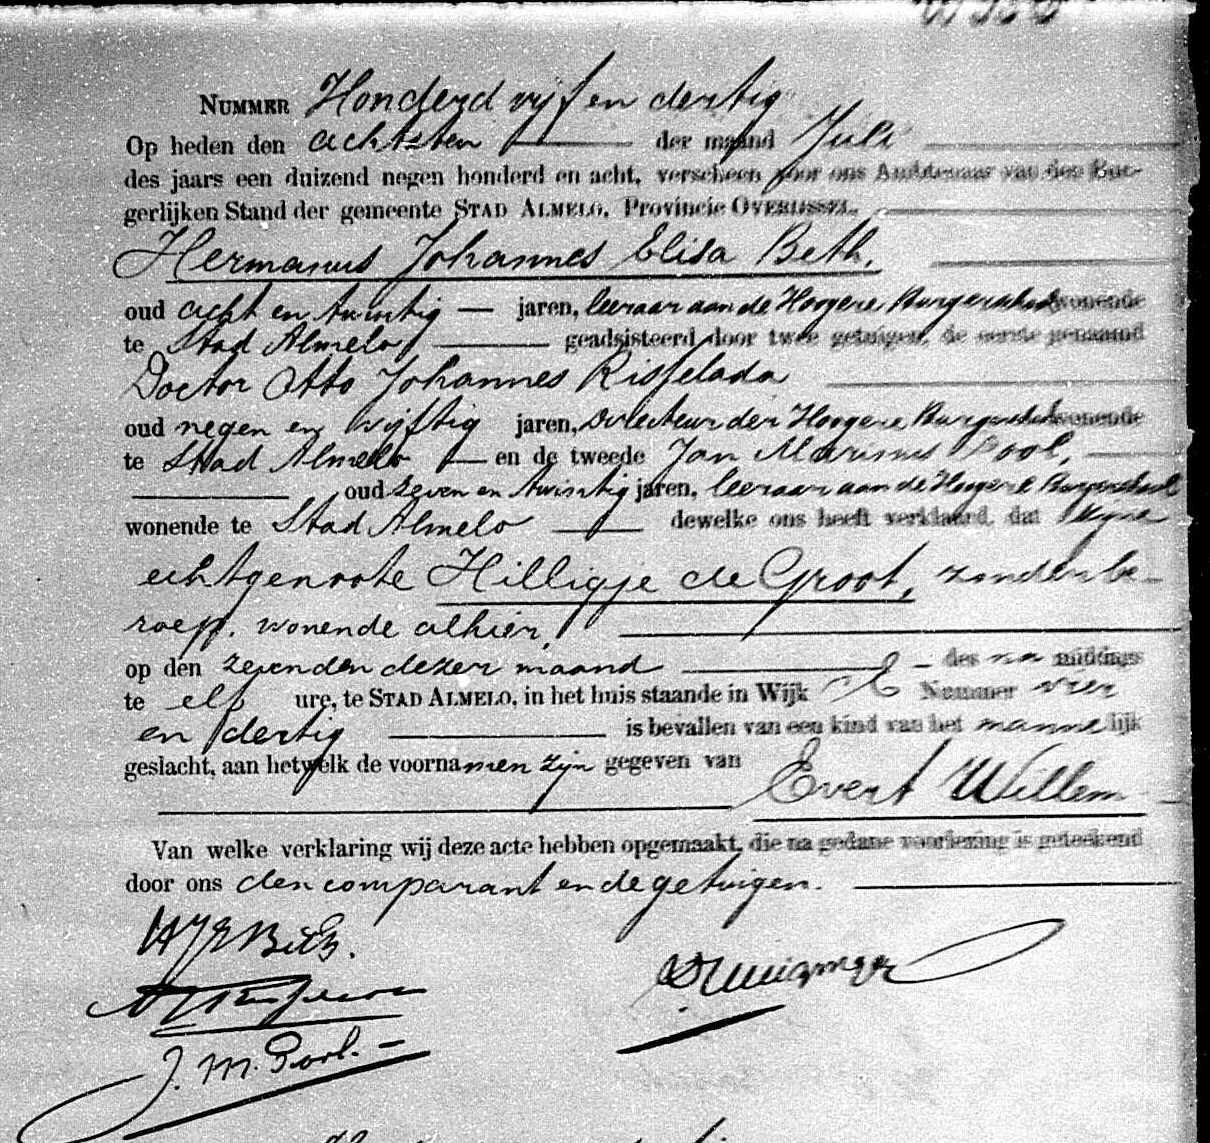 NUMMER Honderd vijf en dertig
Op heden den achtsten der maand Juli
des jaars een duizend negen honderd en acht, verscheen voor ons Ambtenaar van den Bur-
gerlijken Stand der gemeente STAD ALMELO, Provincie OVERIJSSEL,
Hermanus Johannes Elisa Beth,
oud acht en twintig jaren, leeraar aan de Hoogere Burgerschool wonende
te Stad Almelo geadsisteerd door twee getuigen, de eerste genaamd
Doctor Otto Johannes Risselada
oud negen en vijftig jaren, Directeur der Hoogere Burgerschool wonende
te Stad Almelo en de tweede Jan Marinus Pool,
oud zeven en twintig jaren, leeraar aan de Hoogere Burgerschool
wonende te Stad Almelo dewelke ons heeft verklaard, dat zijne
echtgenoote Hilligje de Groot, zonder be-
roep, wonende alhier,
op den zevenden dezer maand des na middags
te elf ure, te STAD ALMELO, in het huis staande in Wijk E Nummer vier
en dertig is bevallen van een kind van het mannelijk
geslacht, aan hetwelk de voornamen zijn gegeven van
Evert Willem
Van welke verklaring wij deze acte hebben opgemaakt, die na gedane voorlezing is geteekend
door ons den comparant en de getuigen.
HJE Beth.
J. M. Pool.